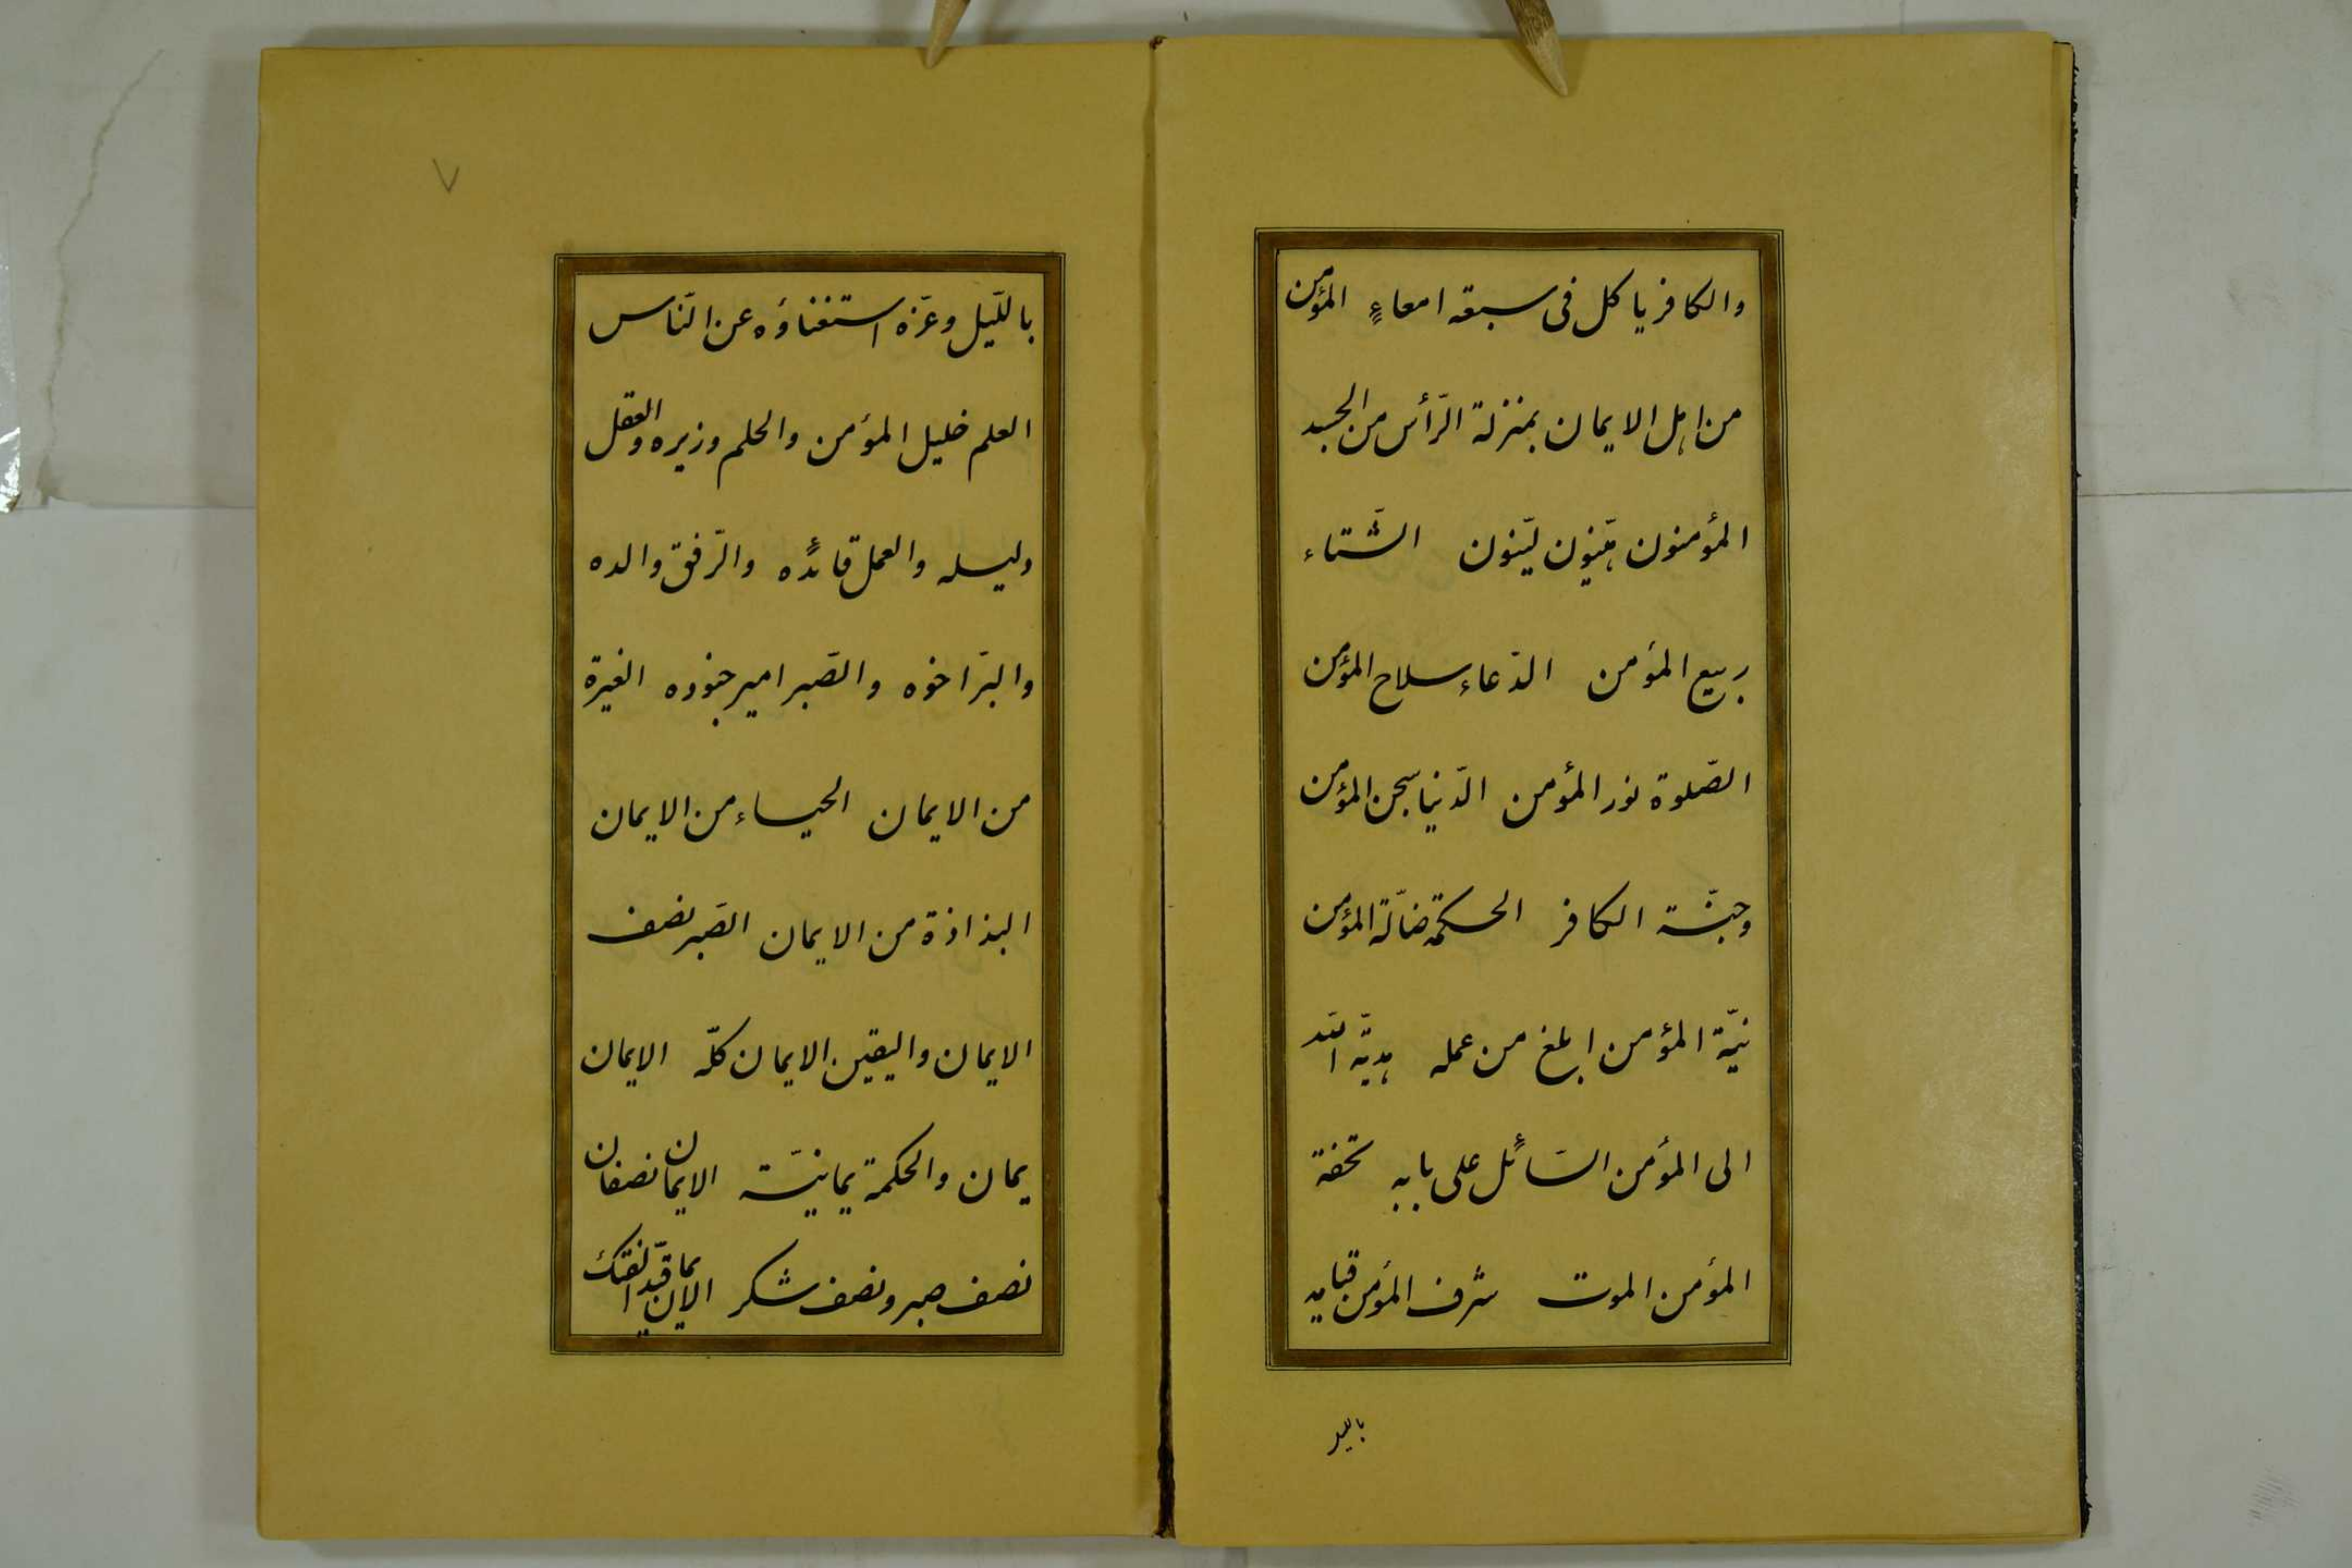 والكافر ياكل فى سبعة امعاءٍ المؤمن
من اهل الايمان بمنزلة الرّأس من الجسد
المؤمنون هيّنون ليّنون الشّتاء
ربيع المؤمن الدّعاء سلاح المؤمن
الصّلوة نور المؤمن الدّنيا سجن المؤمن
وجنّة الكافر الحكمة ضالّة المؤمن
نيّة المؤمن ابلغ من عمله هديّة اللّه
الى المؤمن السّائل على بابه تحفة
المؤمن الموت شرف المؤمن قيامه
بالليل
٧
باللّيل وعزّه استغناؤه عن النّاس
العلم خليل المؤمن والحلم وزيره والعقل
دليله والعمل قائده والرّفق والده
والبرّ اخوه والصّبر امير جنوده الغيرة
من الايمان الحياء من الايمان
البذاذة من الايمان الصّبر نصف
الايمان واليقين الايمان كلّه الايمان
يمان والحكمة يمانيّة الايمان نصفان
نصف صبر ونصف شكر الايمان قيّد الفتك